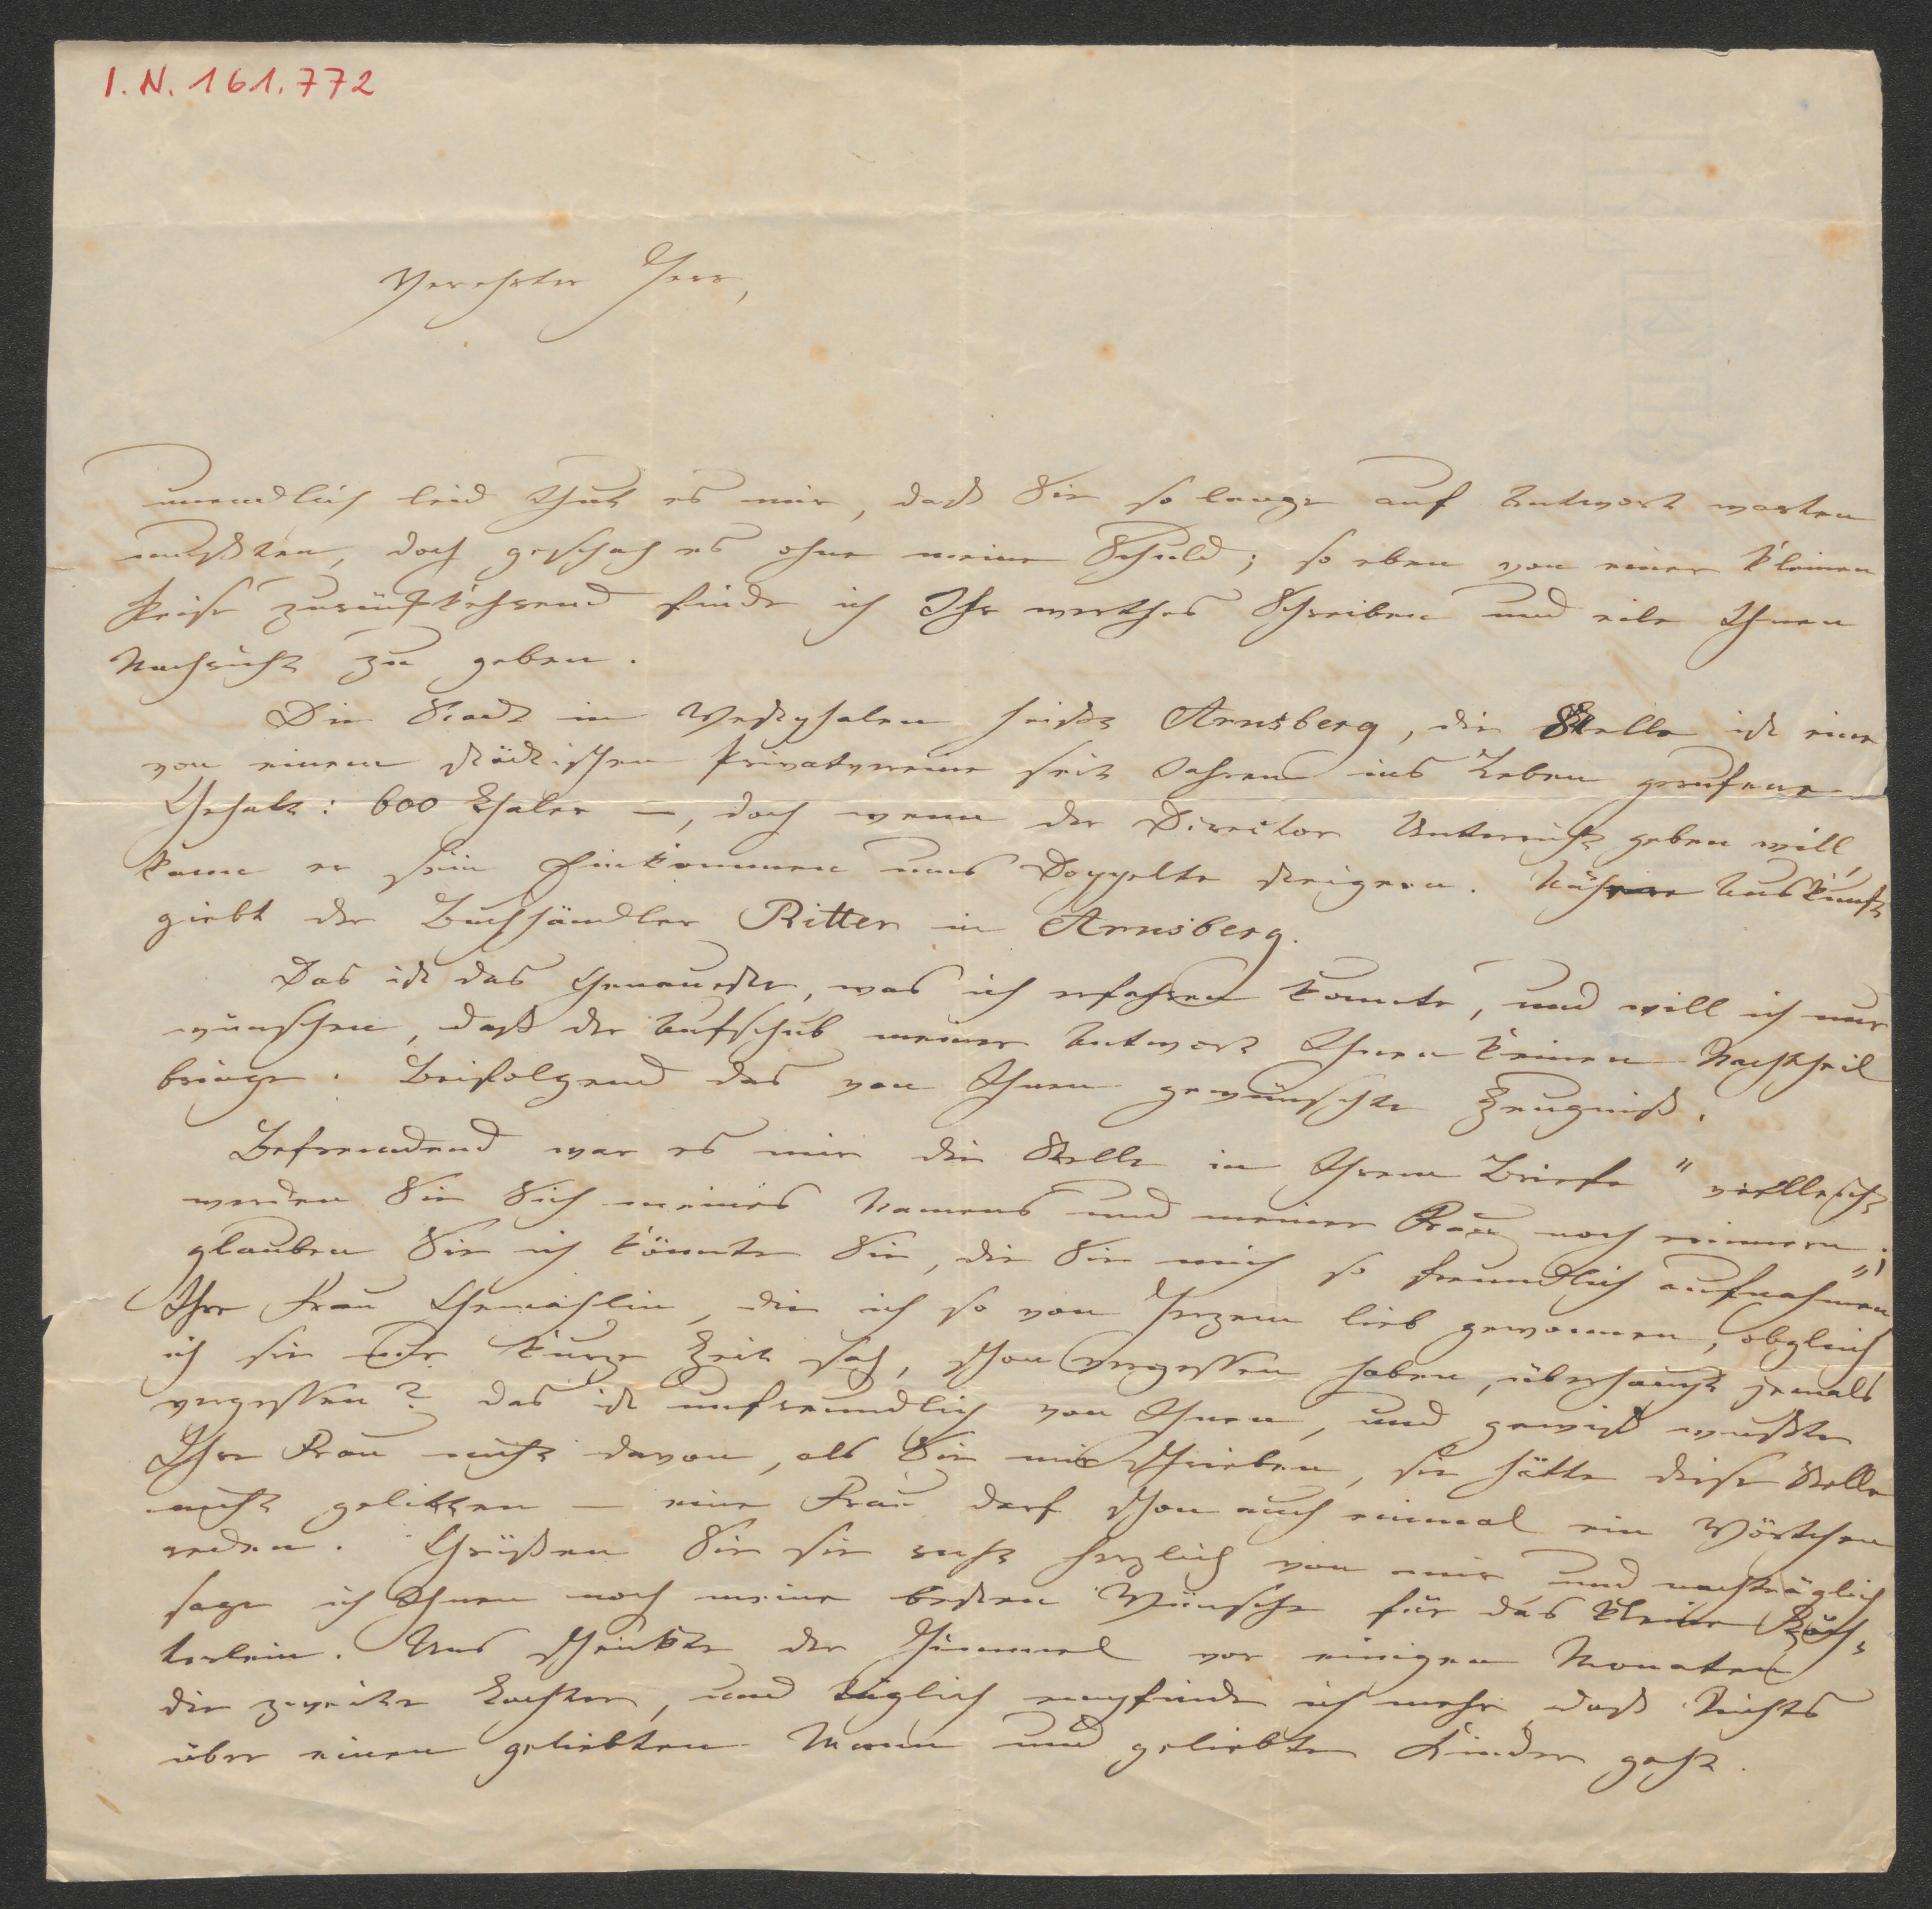 I.N. 161.772
Verehrter Herr,
unendlich leid thut es mir, daß Sie so lange auf Antwort warten
mußten, doch geschah es ohne meine Schuld; so eben von einer kleinen
Reise zurückkehrend finde ich Ihr werthes Schreiben und eile Ihnen
Nachricht zu geben.
Die Stadt in Westphalen heißt Arnsberg, die Stelle ist eine
von einem städtischen Privatvereine seit Jahren ins Leben gerufene
Gehalt: 600 Thaler —, doch wenn der Director Unterricht geben will,
kann er sein Einkommen ums Doppelte steigern. Nähere Auskunft
giebt der Buchhändler Ritter in Arnsberg.
Das ist das Genaueste, was ich erfahren konnte, und will ich nur
wünschen, daß der Aufschub meiner Antwort Ihnen keinen Nachtheil
bringe. Beifolgend das von Ihnen gewünschte Zeugniß.
Befremdend war es mir die Stelle in Ihrem Briefe "vielleicht
werden Sie Sich meines Namens und meiner Frau noch erinnern";
glauben Sie ich könnte Sie, die Sie mich so freundlich aufnahmen,
Ihre Frau Gemahlin, die ich so von Herzen lieb gewonnen, obgleich
ich sie nur kurze Zeit sah, schon vergessen haben, überhaupt jemals
vergessen? das ist unfreundlich von Ihnen, und gewiß wußte
Ihre Frau nicht davon, als Sie mir schrieben, sie hätte diese Stelle
nicht gelitten — eine Frau darf schon auch einmal ein Wörtchen
reden. Grüßen Sie sie recht herzlich von mir und nachträglich
sage ich Ihnen noch meine besten Wünsche für das kleine Töch-
terlein. Uns schenkte der Himmel vor einigen Monaten
die zweite Tochter, und täglich empfinde ich mehr daß Nichts
über einen geliebten Mann und geliebte Kinder geht.